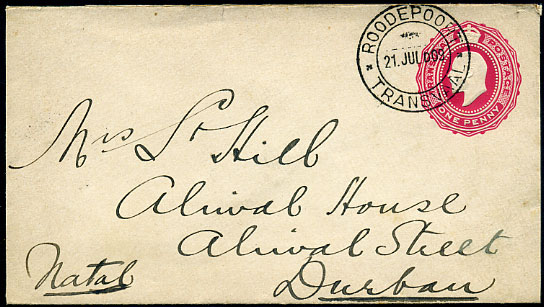 ROODEPOORT
21.JUL 09
TRANSVAAL
TRANSVAAL POSTAGE
ONE PENNY
Mrs S. Hill
Aliwal House
Aliwal Street
Natal
Durban